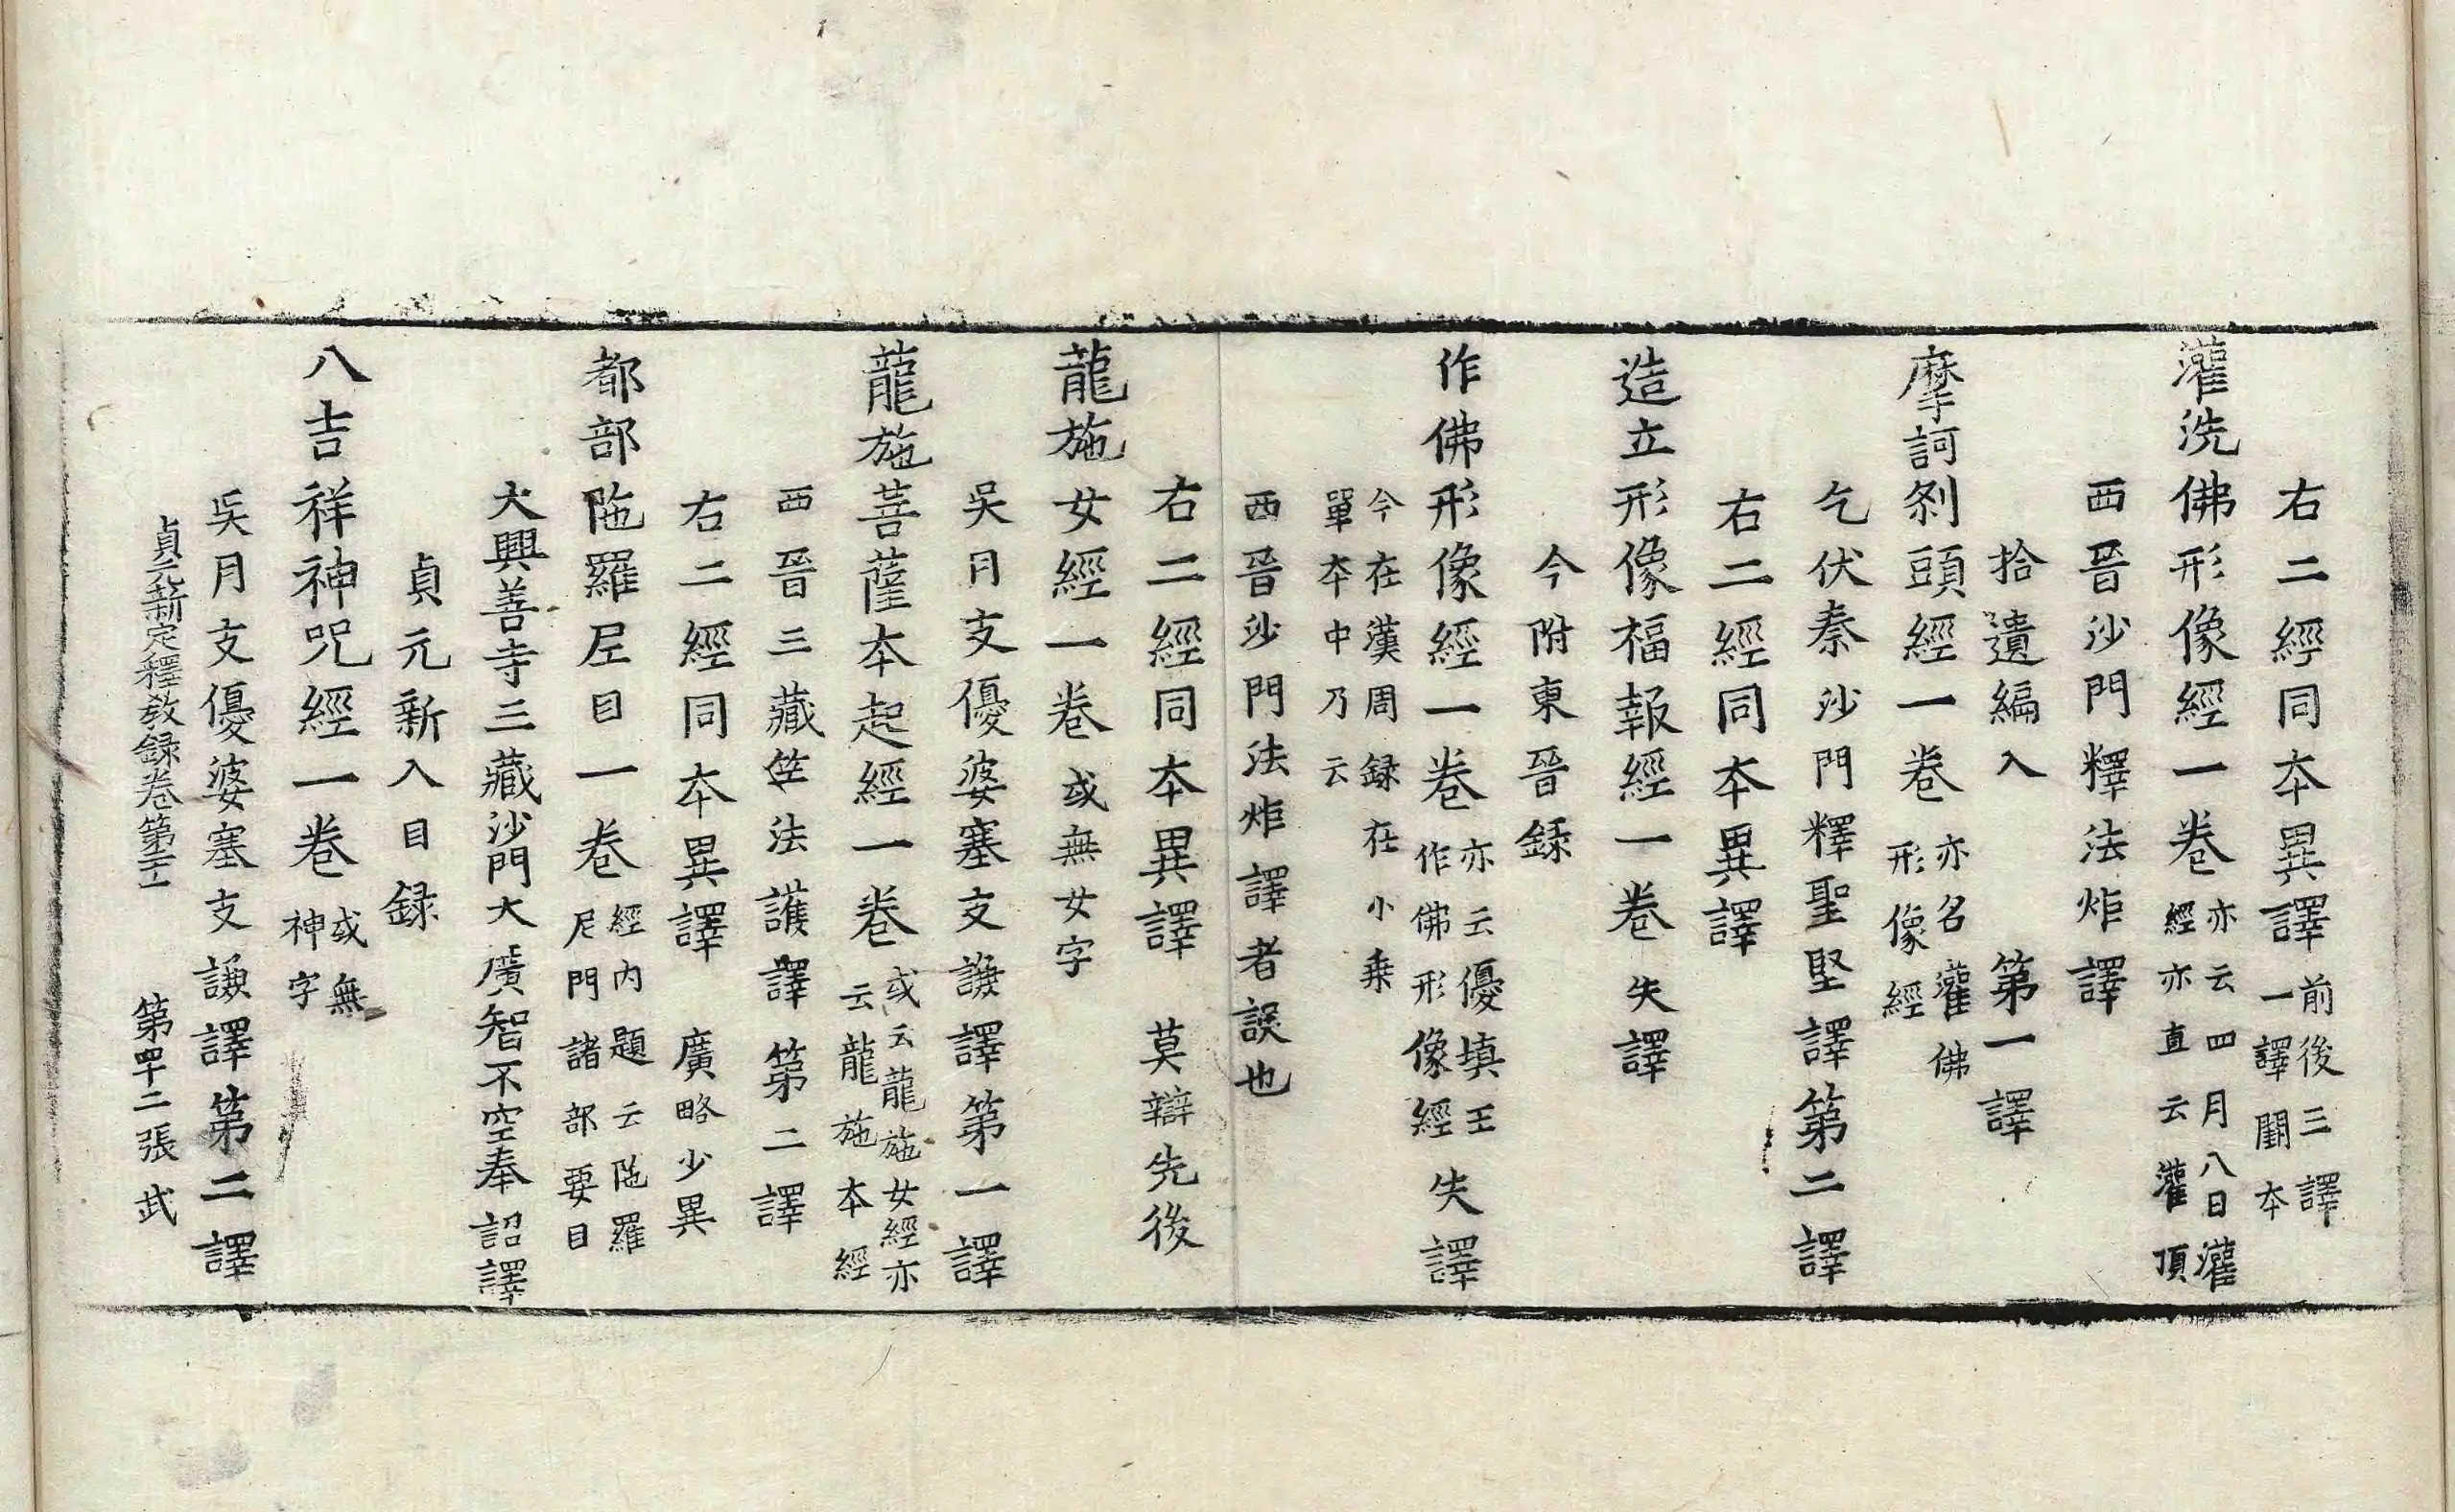 右二經同本異譯前後三譯一譯闕本
灌洗佛形像經一卷亦云四月八日灌經亦直云灌頂
西晉沙門釋法炬譯
拾遺編入 第一譯
摩訶剎頭經一卷亦名灌佛形像經
乞伏秦沙門釋聖堅譯第二譯
右二經同本異譯
造立形像福報經一卷失譯
今附東晉錄
作佛形像經一卷亦云優填王作佛形像經失譯
今在漢周録在小乗單本中乃云
西晉沙門法炬譯者誤也
右二經同本異譯 莫辯先後
龍施女經一卷或無女字
吳月支優婆塞支謙譯第一譯
龍施菩薩本起經一卷或云龍施女經亦云龍施本經
西晉三藏竺法護譯第二譯
右二經同本異譯 廣略少異
都部陁羅尼目一卷經内題云陁羅尼門諸部要目
大興善寺三藏沙門大廣智不空奉 詔譯
貞元新入目録
八吉祥神呪經一卷或無神字
吳月支優婆塞支謙譯第二譯
貞元新定釋教録卷第二十 第四十二張 武